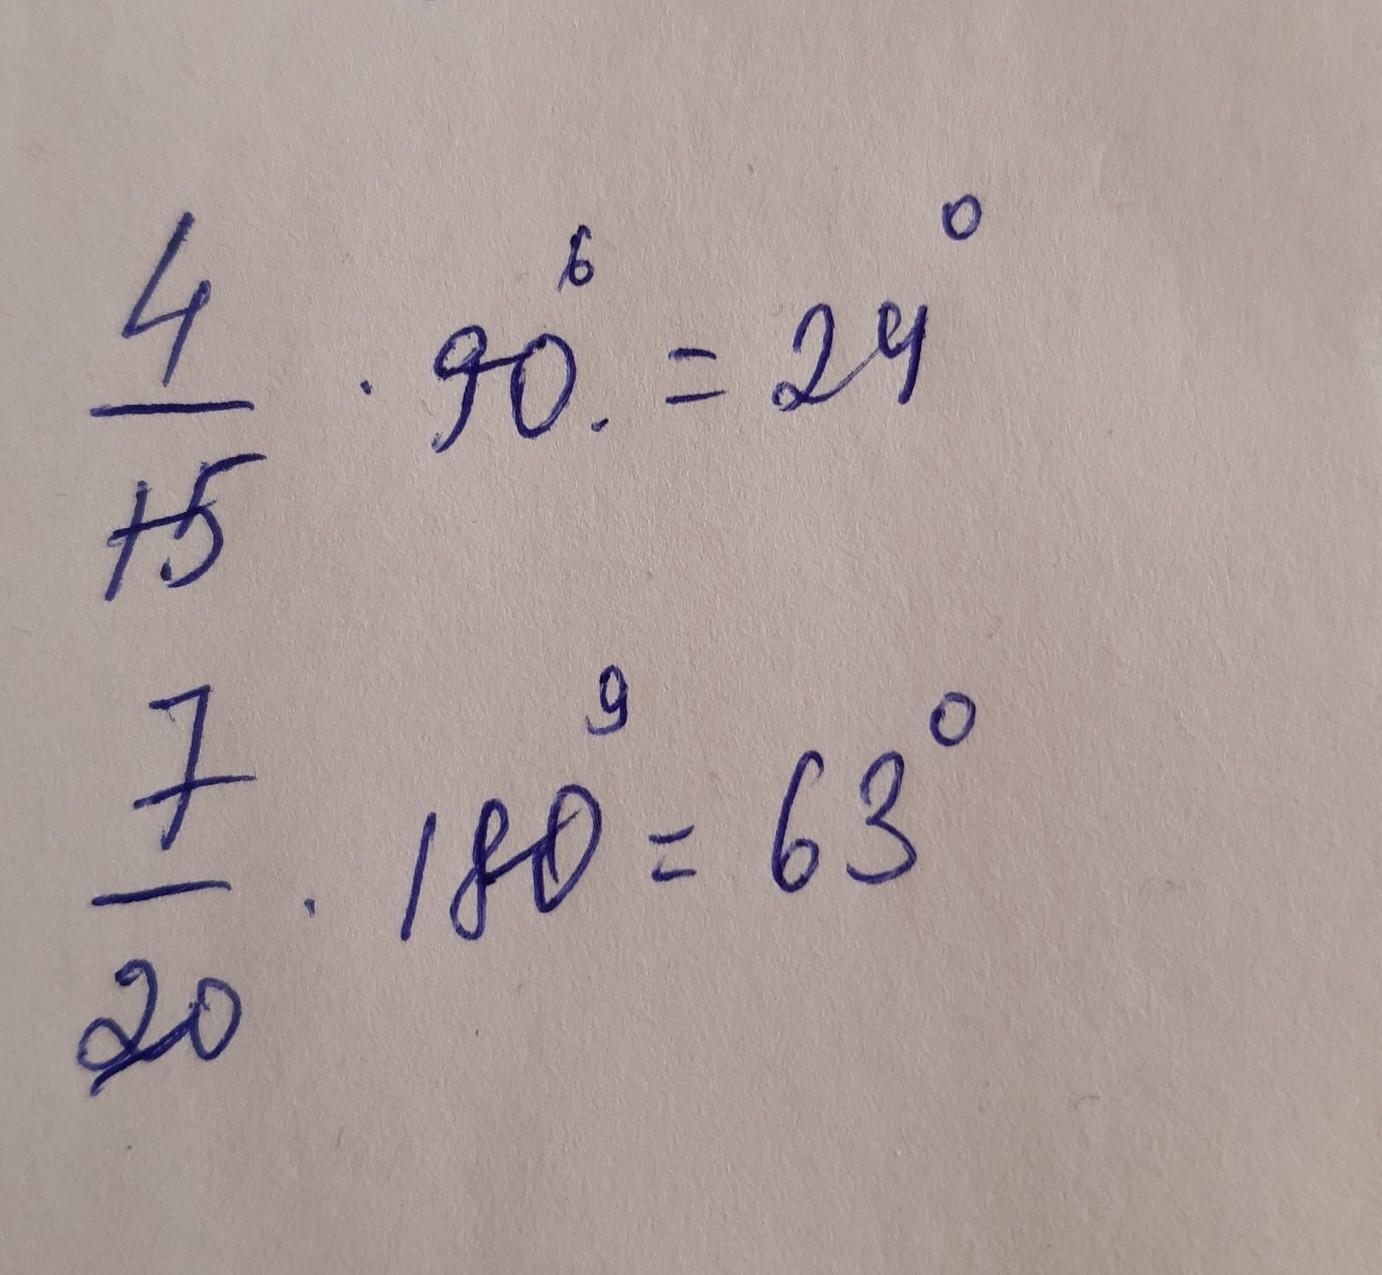 4/15 · 90⁶ = 24°
7/20 · 180⁹ = 63°